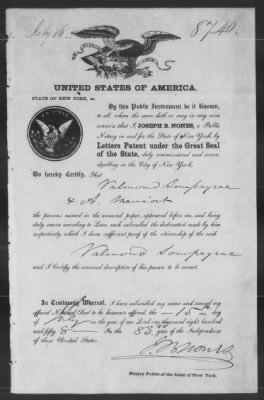 July 16
8740
UNITED STATES OF AMERICA.
STATE OF NEW YORK, ss.
By this Public Instrument be it known,
to all whom the same doth or may in any wise
concern that I, JOSEPH B. NONES, a Public
Notary in and for the State of New York by
Letters Patent under the Great Seal
of the State, duly commissioned and sworn,
dwelling in the City of New York,
Do hereby Certify, That
Valmond Sompayrac
& A.
the persons named in the annexed paper, appeared before me, and being
duly sworn according to Law, each subscribed the declaration made by him
respectively, which I deem sufficient proof of the citizenship of the said
Valmond Sompayrac
and I Certify the annexed description of his person to be correct.
In Testimony Whereof, I have subscribed my name and caused my
official Notarial Seal to be hereunto affixed, the 15th day
of July in the year of our Lord one thousand eight hundred
and fifty 8 In the 83rd year of the Independence
of these United States.
J. B. Nones
Notary Public of the State of New York.